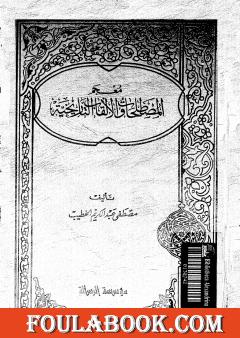 معجم
المصطلحات والألقاب التاريخية
تأليف
مصطفى عبد الكريم الخطيب
مؤسسة الرسالة
Bibliotheca Alexandrina
FOULABOOK.COM